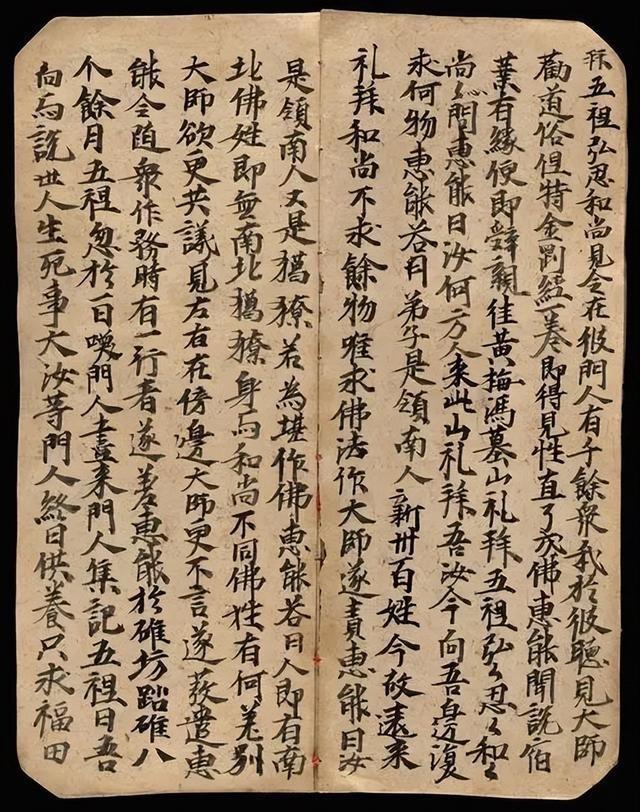 拜五祖弘忍和尚見今在彼門人有千餘衆我於彼聽見大師
勸道俗但特金剛經一卷即得見性直了成佛惠能聞說宿
業有緣便即辞親往黃梅馮墓山礼拜五祖弘〻忍〻和〻
尚〻問惠能曰汝何方人来此山礼拜吾汝今向吾边復
求何物惠能答曰弟子是領南人新州百姓今故遠来
礼拜和尚不求餘物唯求佛法作大師遂責惠能曰汝
是領南人又是獦獠若為堪作佛惠能答曰人即有南
北佛姓即無南北獦獠身与和尚不同佛姓有何差別
大師欲更共議見左右在傍邊大師更不言遂發遣惠
能令隨衆作務時有一行者遂差惠能於碓坊踏碓八
个餘月五祖忽於一日喚門人盡来門人集記五祖曰吾
向与說世人生死事大汝等門人終日供養只求福田